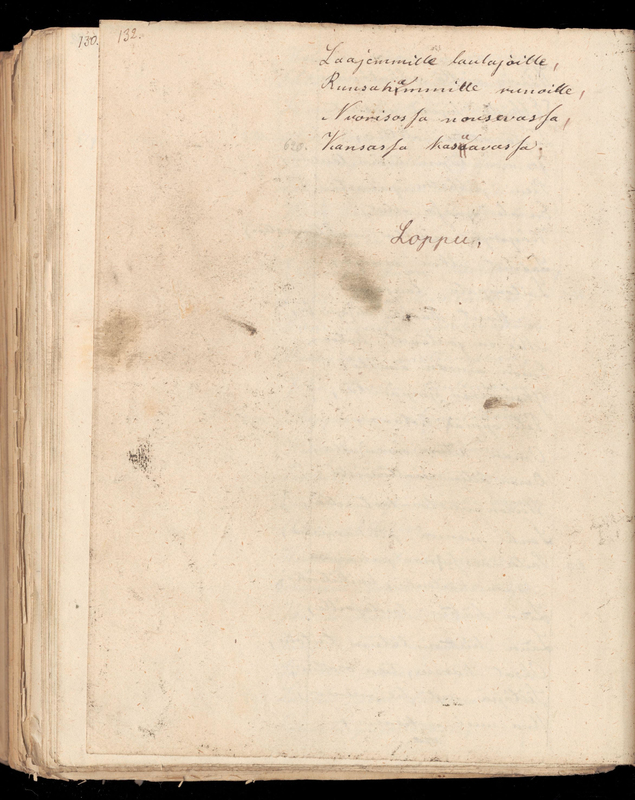 130. 132.
Laajemmille laulajoille,
Runsahammille runoille,
Nuorisossa nousevassa,
620. Kansassa kasuavassa.
Loppu.